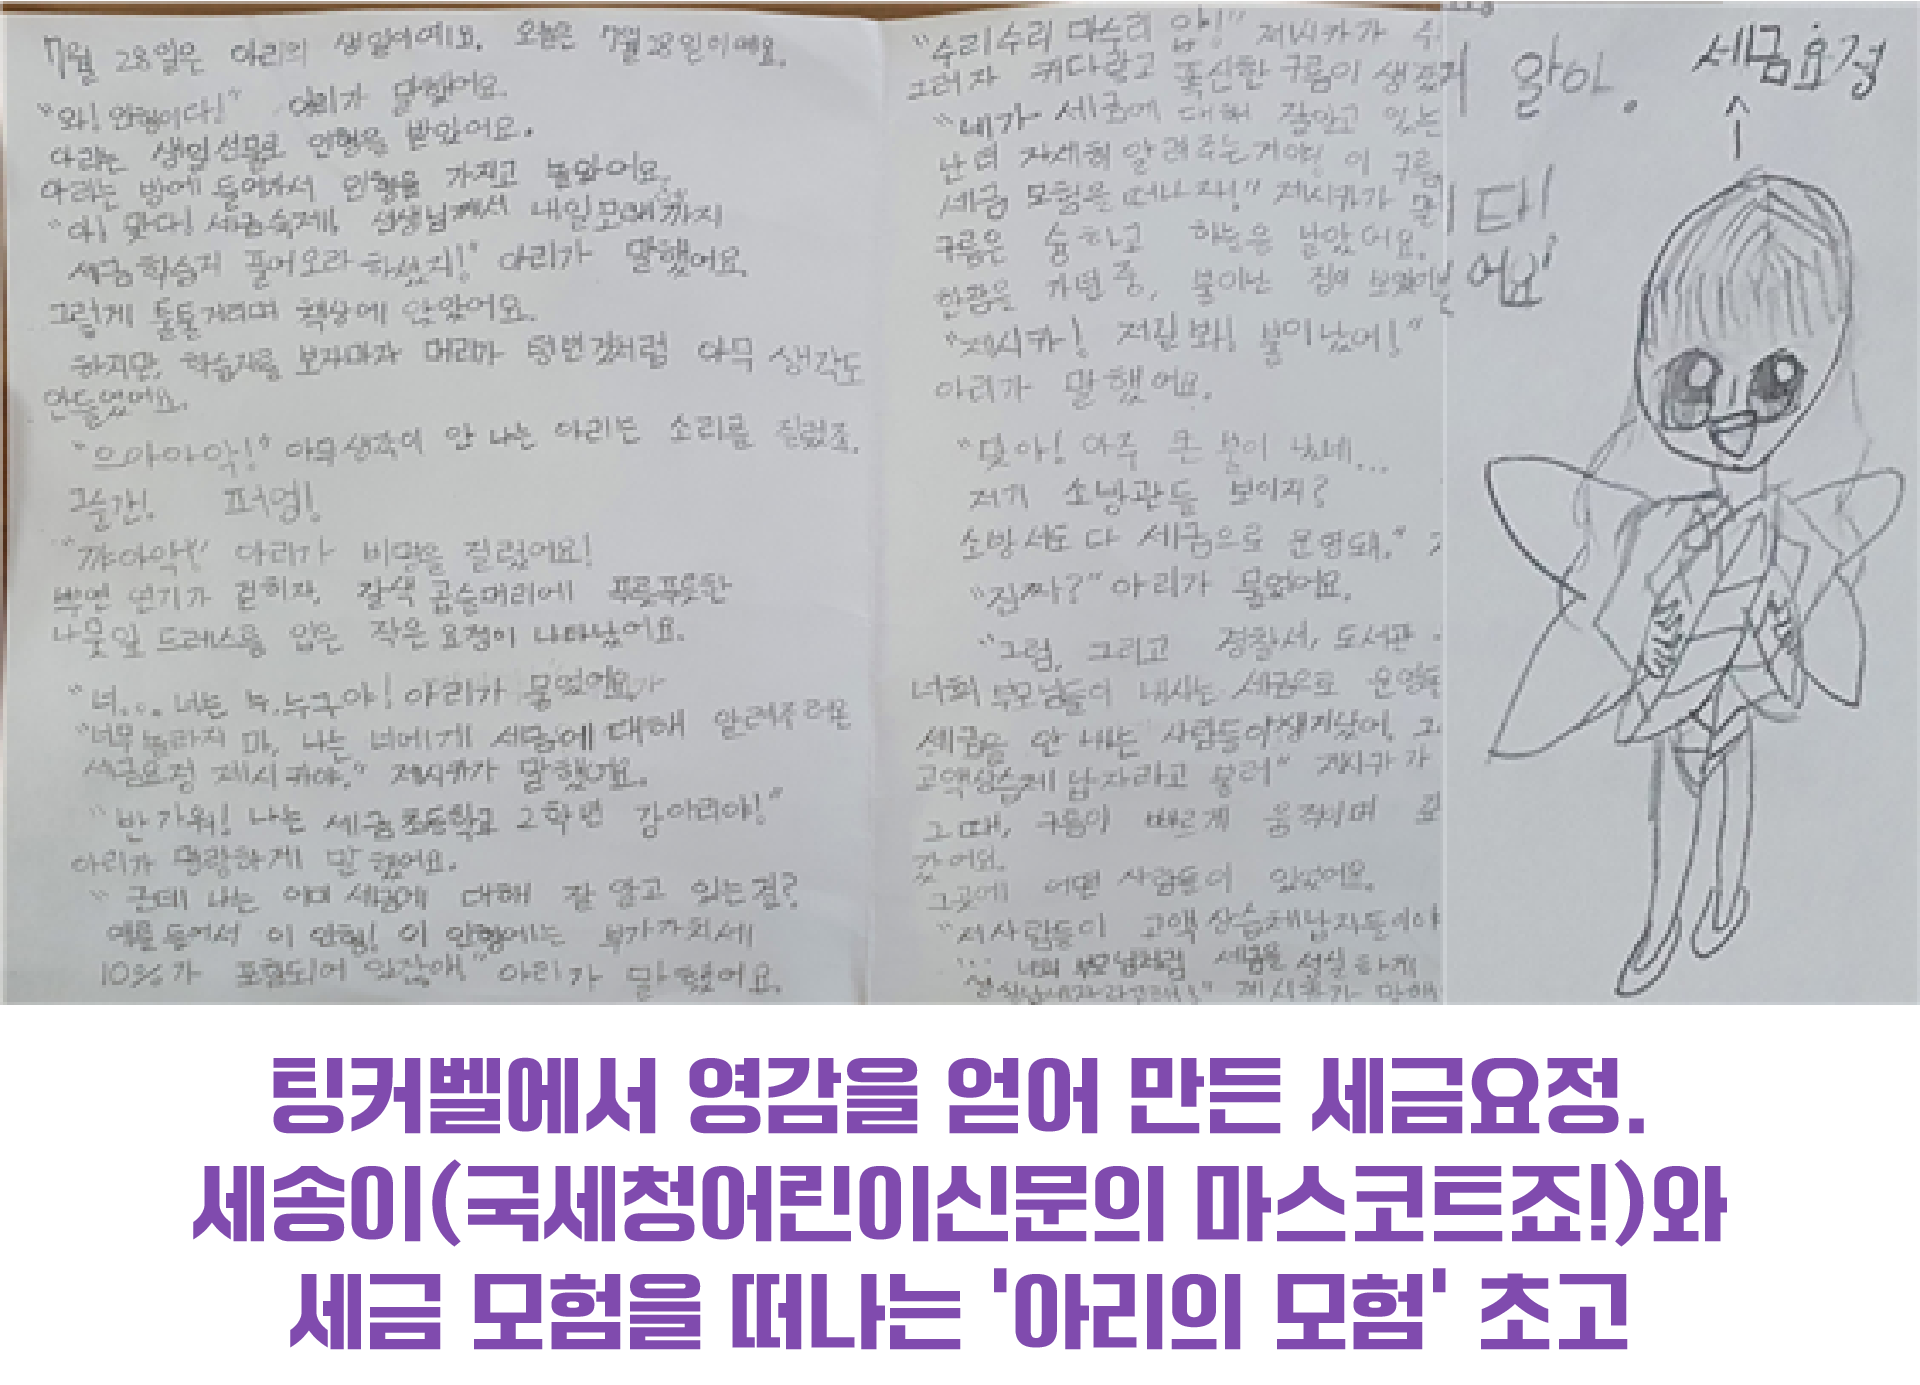 7월 28일은 아리의 생일이예요. 오늘은 7월 28일이예요.
"와! 인형이다!" 아리가 말했어요.
아리는 생일선물로 인형을 받았어요.
아리는 방에 들어가서 인형을 가지고 놀았어요.
"아! 맞다! 세금숙제! 선생님께서 내일모레까지
세금학습지 풀어오라 하셨지!" 아리가 말했어요.
그렇게 툴툴거리며 책상에 앉았어요.
하지만, 학습지를 보자마자 머리가 텅빈것처럼 아무 생각도
안들었어요.
"으아아악!" 아무생각이 안 나는 아리는 소리를 질렀죠.
그순간! 퍼엉!
"꺄아악!" 아리가 비명을 질렀어요!
뿌연 연기가 걷히자, 갈색 곱슬머리에 푸릇푸릇한
나뭇잎 드레스를 입은 작은 요정이 나타났어요.
"너... 너는 누.누구야! 아리가 물었어요.
"너무 놀라지 마, 나는 너에게 세금에 대해 알려주러온
세금요정 제시카야." 제시카가 말했어요.
"반가워! 나는 세금초등학교 2학년 김아리야!"
아리가 명랑하게 말했어요.
"근데 나는 이미 세금에 대해 잘 알고 있는걸?
예를 들어서 이 인형! 이 인형에는 부가가치세
10%가 포함되어 있잖아." 아리가 말했어요.
"수리수리 마수리 얍!" 제시카가
그러자 커다랗고 폭신한 구름이
"네가 세금에 대해 잘알고 있는
난 더 자세히 알려주는거야! 이 구름
세금 모험을 떠나자!" 제시카가
구름은 슝하고 하늘을 날았어요.
한참을 가던 중, 불이난 집이
"제시카! 저길봐! 불이났어!"
아리가 말했어요.
"맞아! 아주 큰 불이 났네...
저기 소방관들 보이지?
소방서도 다 세금으로 운영돼."
"진짜?" 아리가 물었어요.
"그럼, 그리고 경찰서, 도서관
너희 부모님들이 내시는 세금으로
세금을 안 내는 사람들이
고액상습체납자라고 불러" 제시카가
그때, 구름이 빠르게 움직이며
갔어요.
그곳에 어떤 사람들이 있었어요.
"저사람들이 고액상습체납자들이야
너희 부모님처럼 세금을 성실하게
제시카가
알아.
어요!
세금요정
팅커벨에서 영감을 얻어 만든 세금요정.
세송이(국세청어린이신문의 마스코트죠!)와
세금 모험을 떠나는 '아리의 모험' 초고